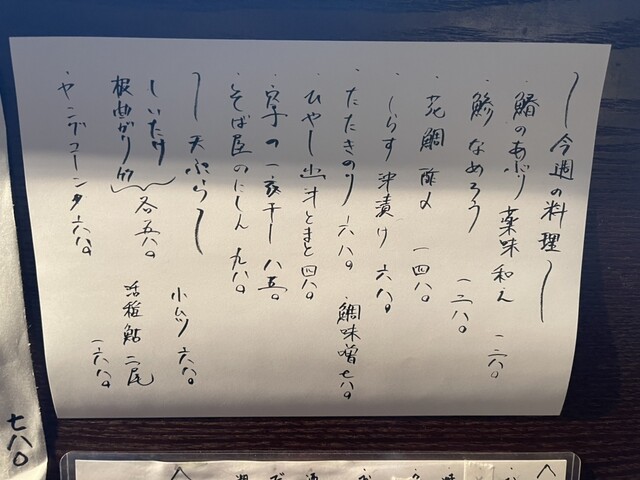 〜今週の料理〜
・鰆のあぶり 薬味和え 一二八〇
・鯵 なめろう 一二八〇
・花鯛酢〆 一四八〇
・しらす沖漬け 六八〇
・たたきのり 六八〇
・鯛味噌 七八〇
・ひやし出汁とまと 四八〇
・穴子の一夜干し 八五〇
・そば屋のにしん 九八〇
〜天ぷら〜
・しいたけ
・根曲がり竹
各五八〇
・ヤングコーン 六八〇
小ムツ 六八〇
活稚鮎 二尾
一六八〇
七八〇